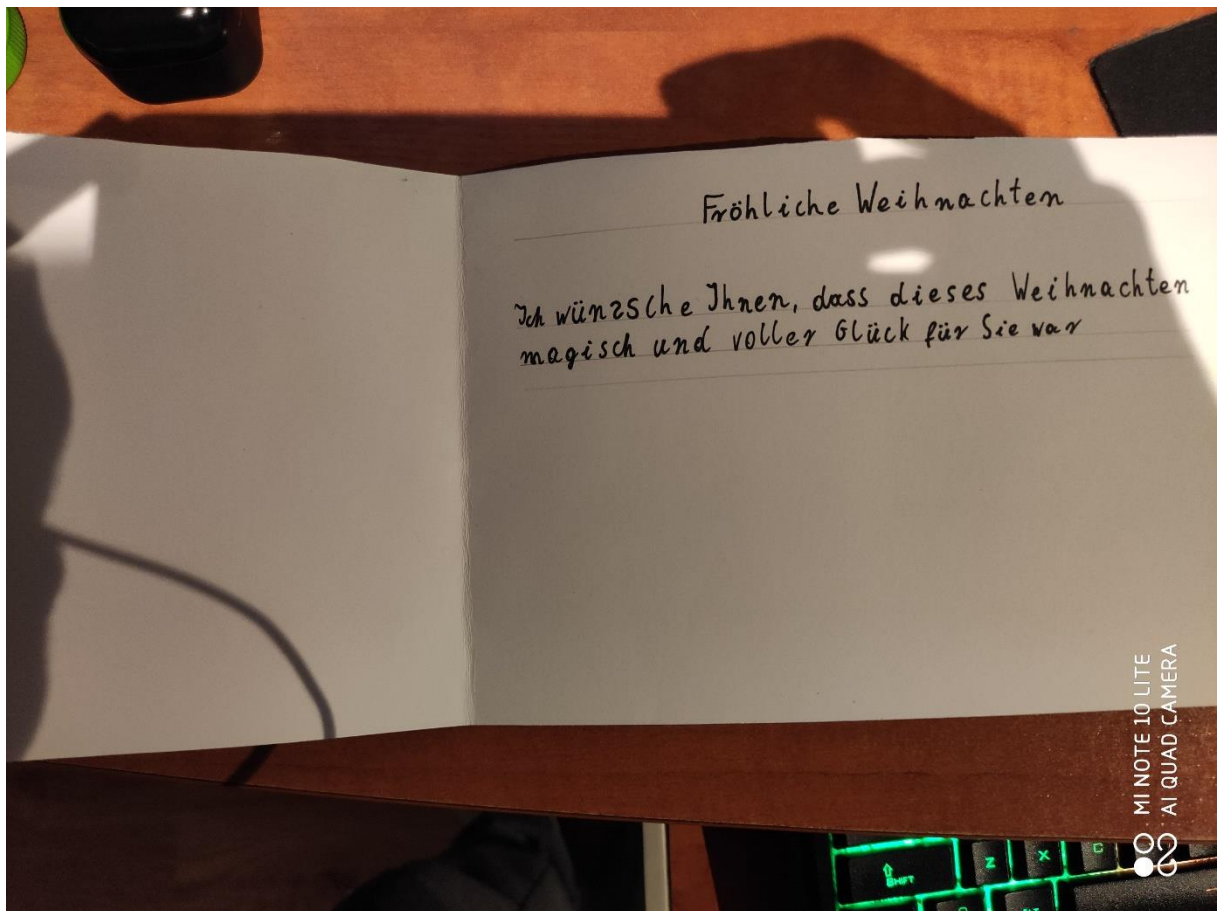 Fröhliche Weihnachten
Ich wünzsche Ihnen, dass dieses Weihnachten
magisch und voller Glück für Sie war
MI NOTE 10 LITE
AI QUAD CAMERA
SHIFT
Z
X
C